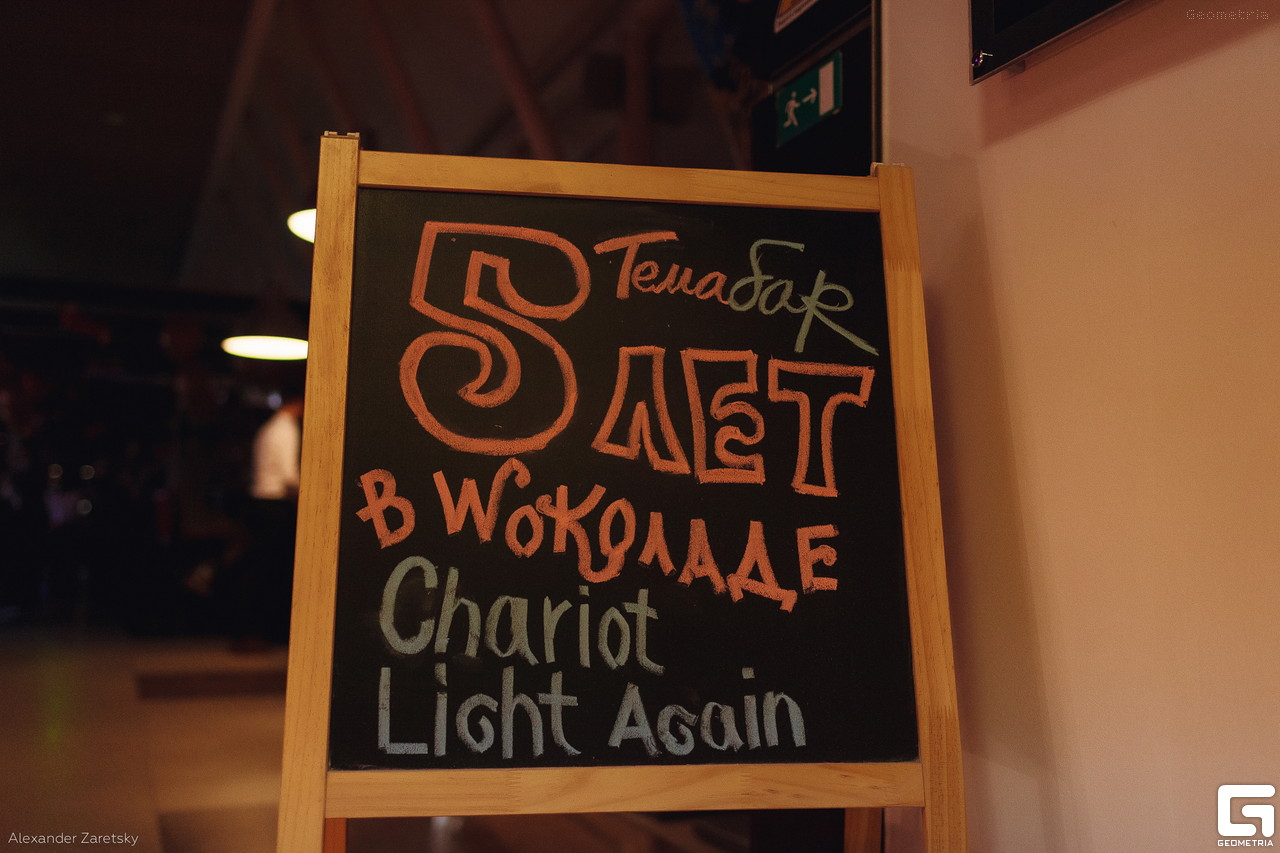 Geometria
5 Темабар
ЛЕТ
В WОКОЛАДЕ
Chariot
Light Again
Alexander Zaretsky
GEOMETRIA